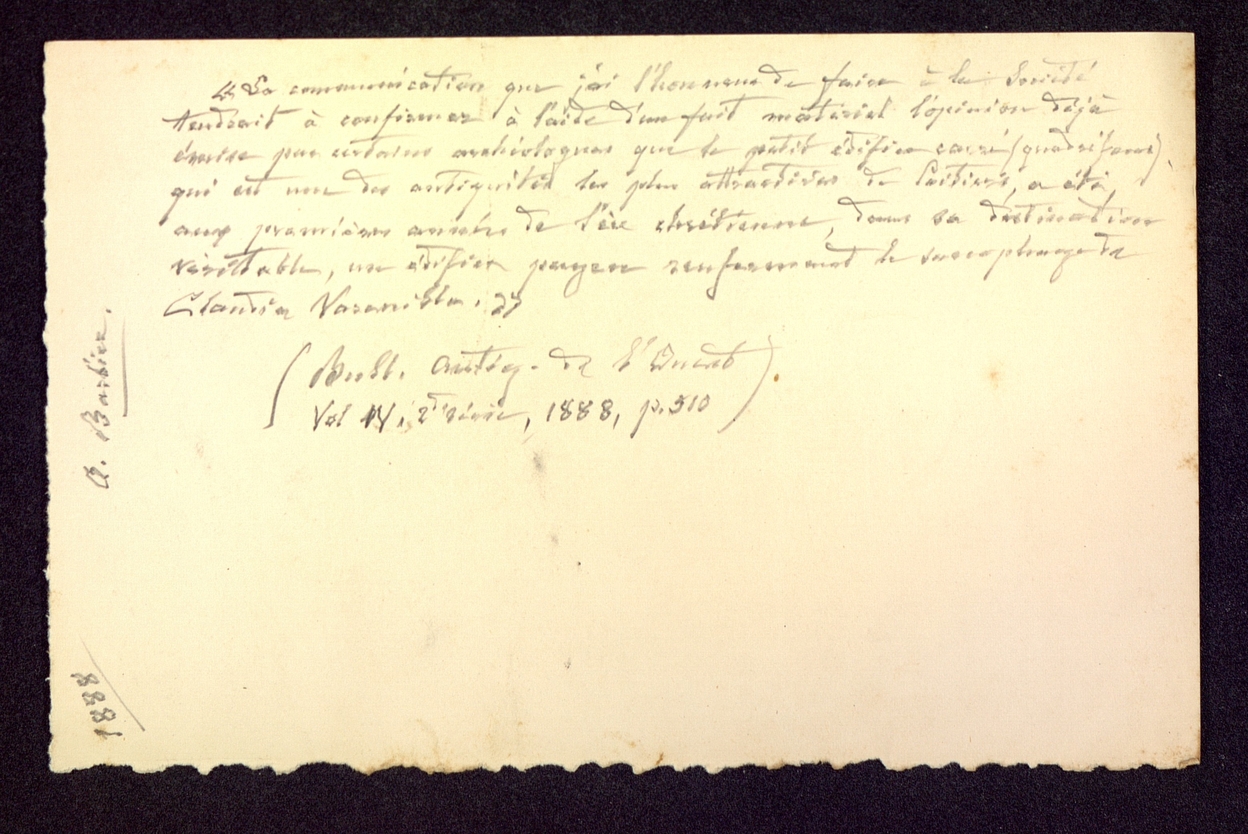 « La communication que j'ai l'honneur de faire à la Société
tendrait à confirmer à l'aide d'un fait matériel l'opinion déjà
émise par certains archéologues que le petit édifice carré (quadrifrons)
qui est une des antiquités les plus attractives de Poitiers, a été,
aux premières années de l'ère chrétienne, dans sa destination
véritable, un édifice payen renfermant le sarcophage de
Claudia Varenilla. »
(Bull. Antiq. de l'Ouest
Vol IV, 2e série, 1888, p. 510)
A. Barbier.
1888